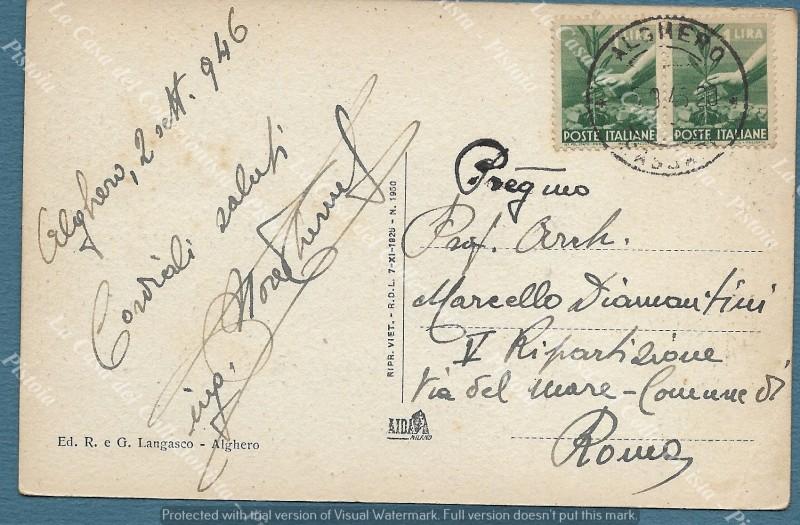 Alghero, 2 sett. 946
Cordiali saluti
ing.
Ed. R. e G. Langasco - Alghero
RIPR. VIET. - R.D.L. 7-XI-1925 - N. 1950
AIDA
MILANO
1 LIRA
POSTE ITALIANE
1 LIRA
POSTE ITALIANE
ALGHERO
Pregmo
Prof. Arch.
Marcello Diamantini
V Ripartizione
Via del Mare - Comune di
Roma
La Casa del Collezionista
Pistoia
Protected with trial version of Visual Watermark. Full version doesn't put this mark.